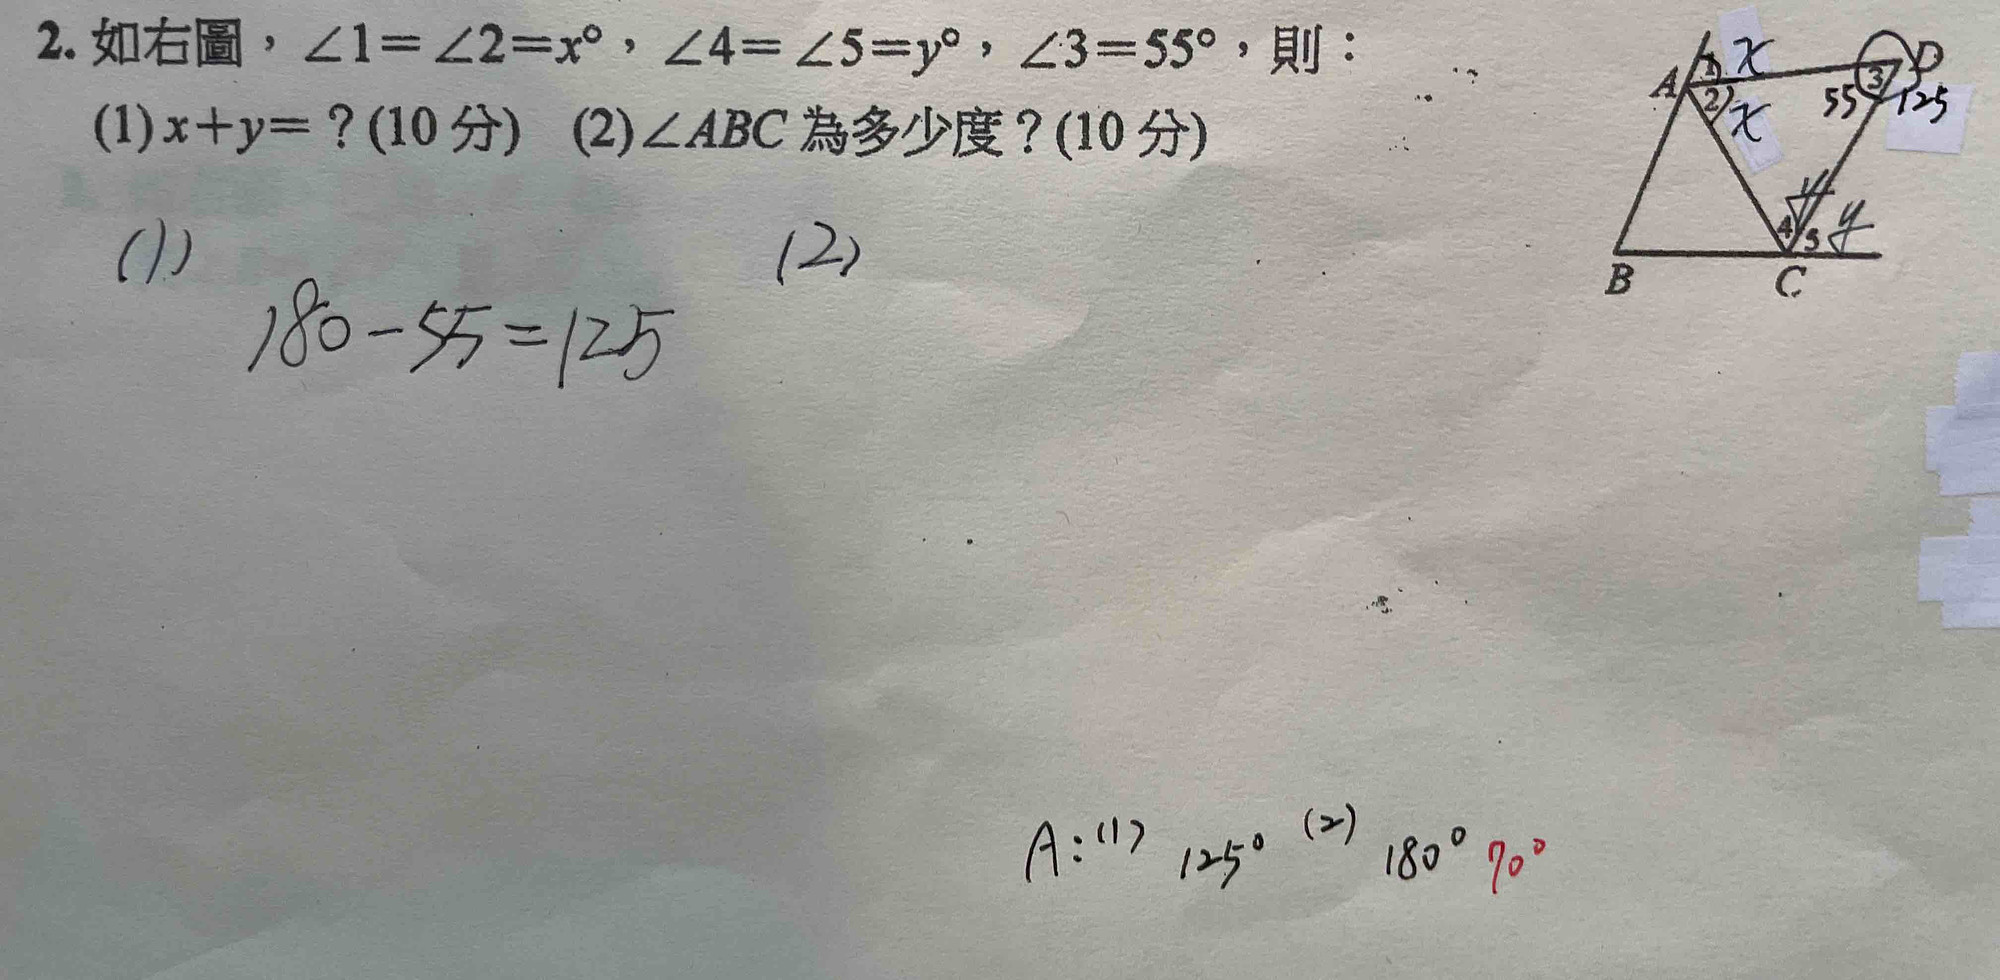 2. 如右圖，∠1=∠2=x°，∠4=∠5=y°，∠3=55°，則：
(1)x+y=？(10 分) (2)∠ABC 為多少度？(10 分)
1 x
A
D
3
2
x
55
125
y
4
5
y
B
C
(1)
(2)
180-55=125
A:(1) 125° (2) 180° 70°